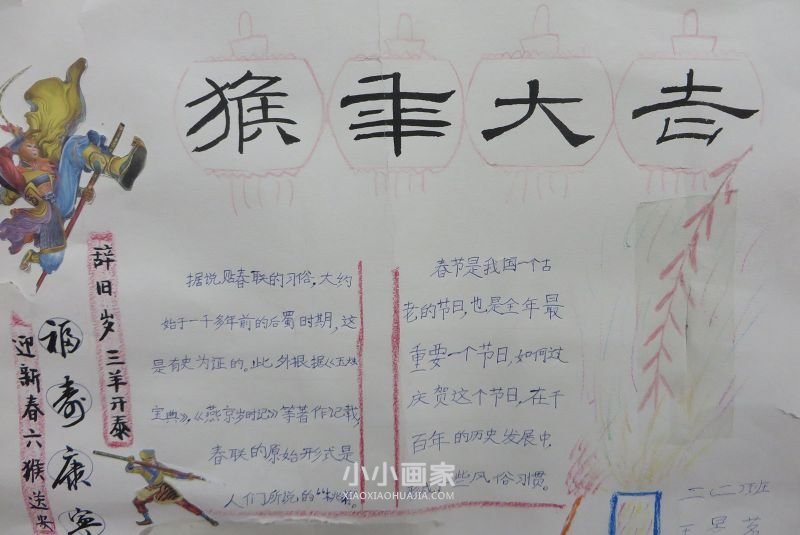 猴年大吉
辞旧岁三羊开泰
福寿康宁
迎新春六猴送安
据说贴春联的习俗,大约
始于一千多年前的后蜀时期,这
是有史为证的。此外根据《玉烛
宝典》,《燕京岁时记》等著作记载,
春联的原始形式是
人们所说的“桃
春节是我国一个古
老的节日,也是全年最
重要一个节日,如何过
庆贺这个节日,在千
百年的历史发展中,
些风俗习惯。
小小画家
XIAOXIAOHUAJIA.COM
二(二)班
王昱茗